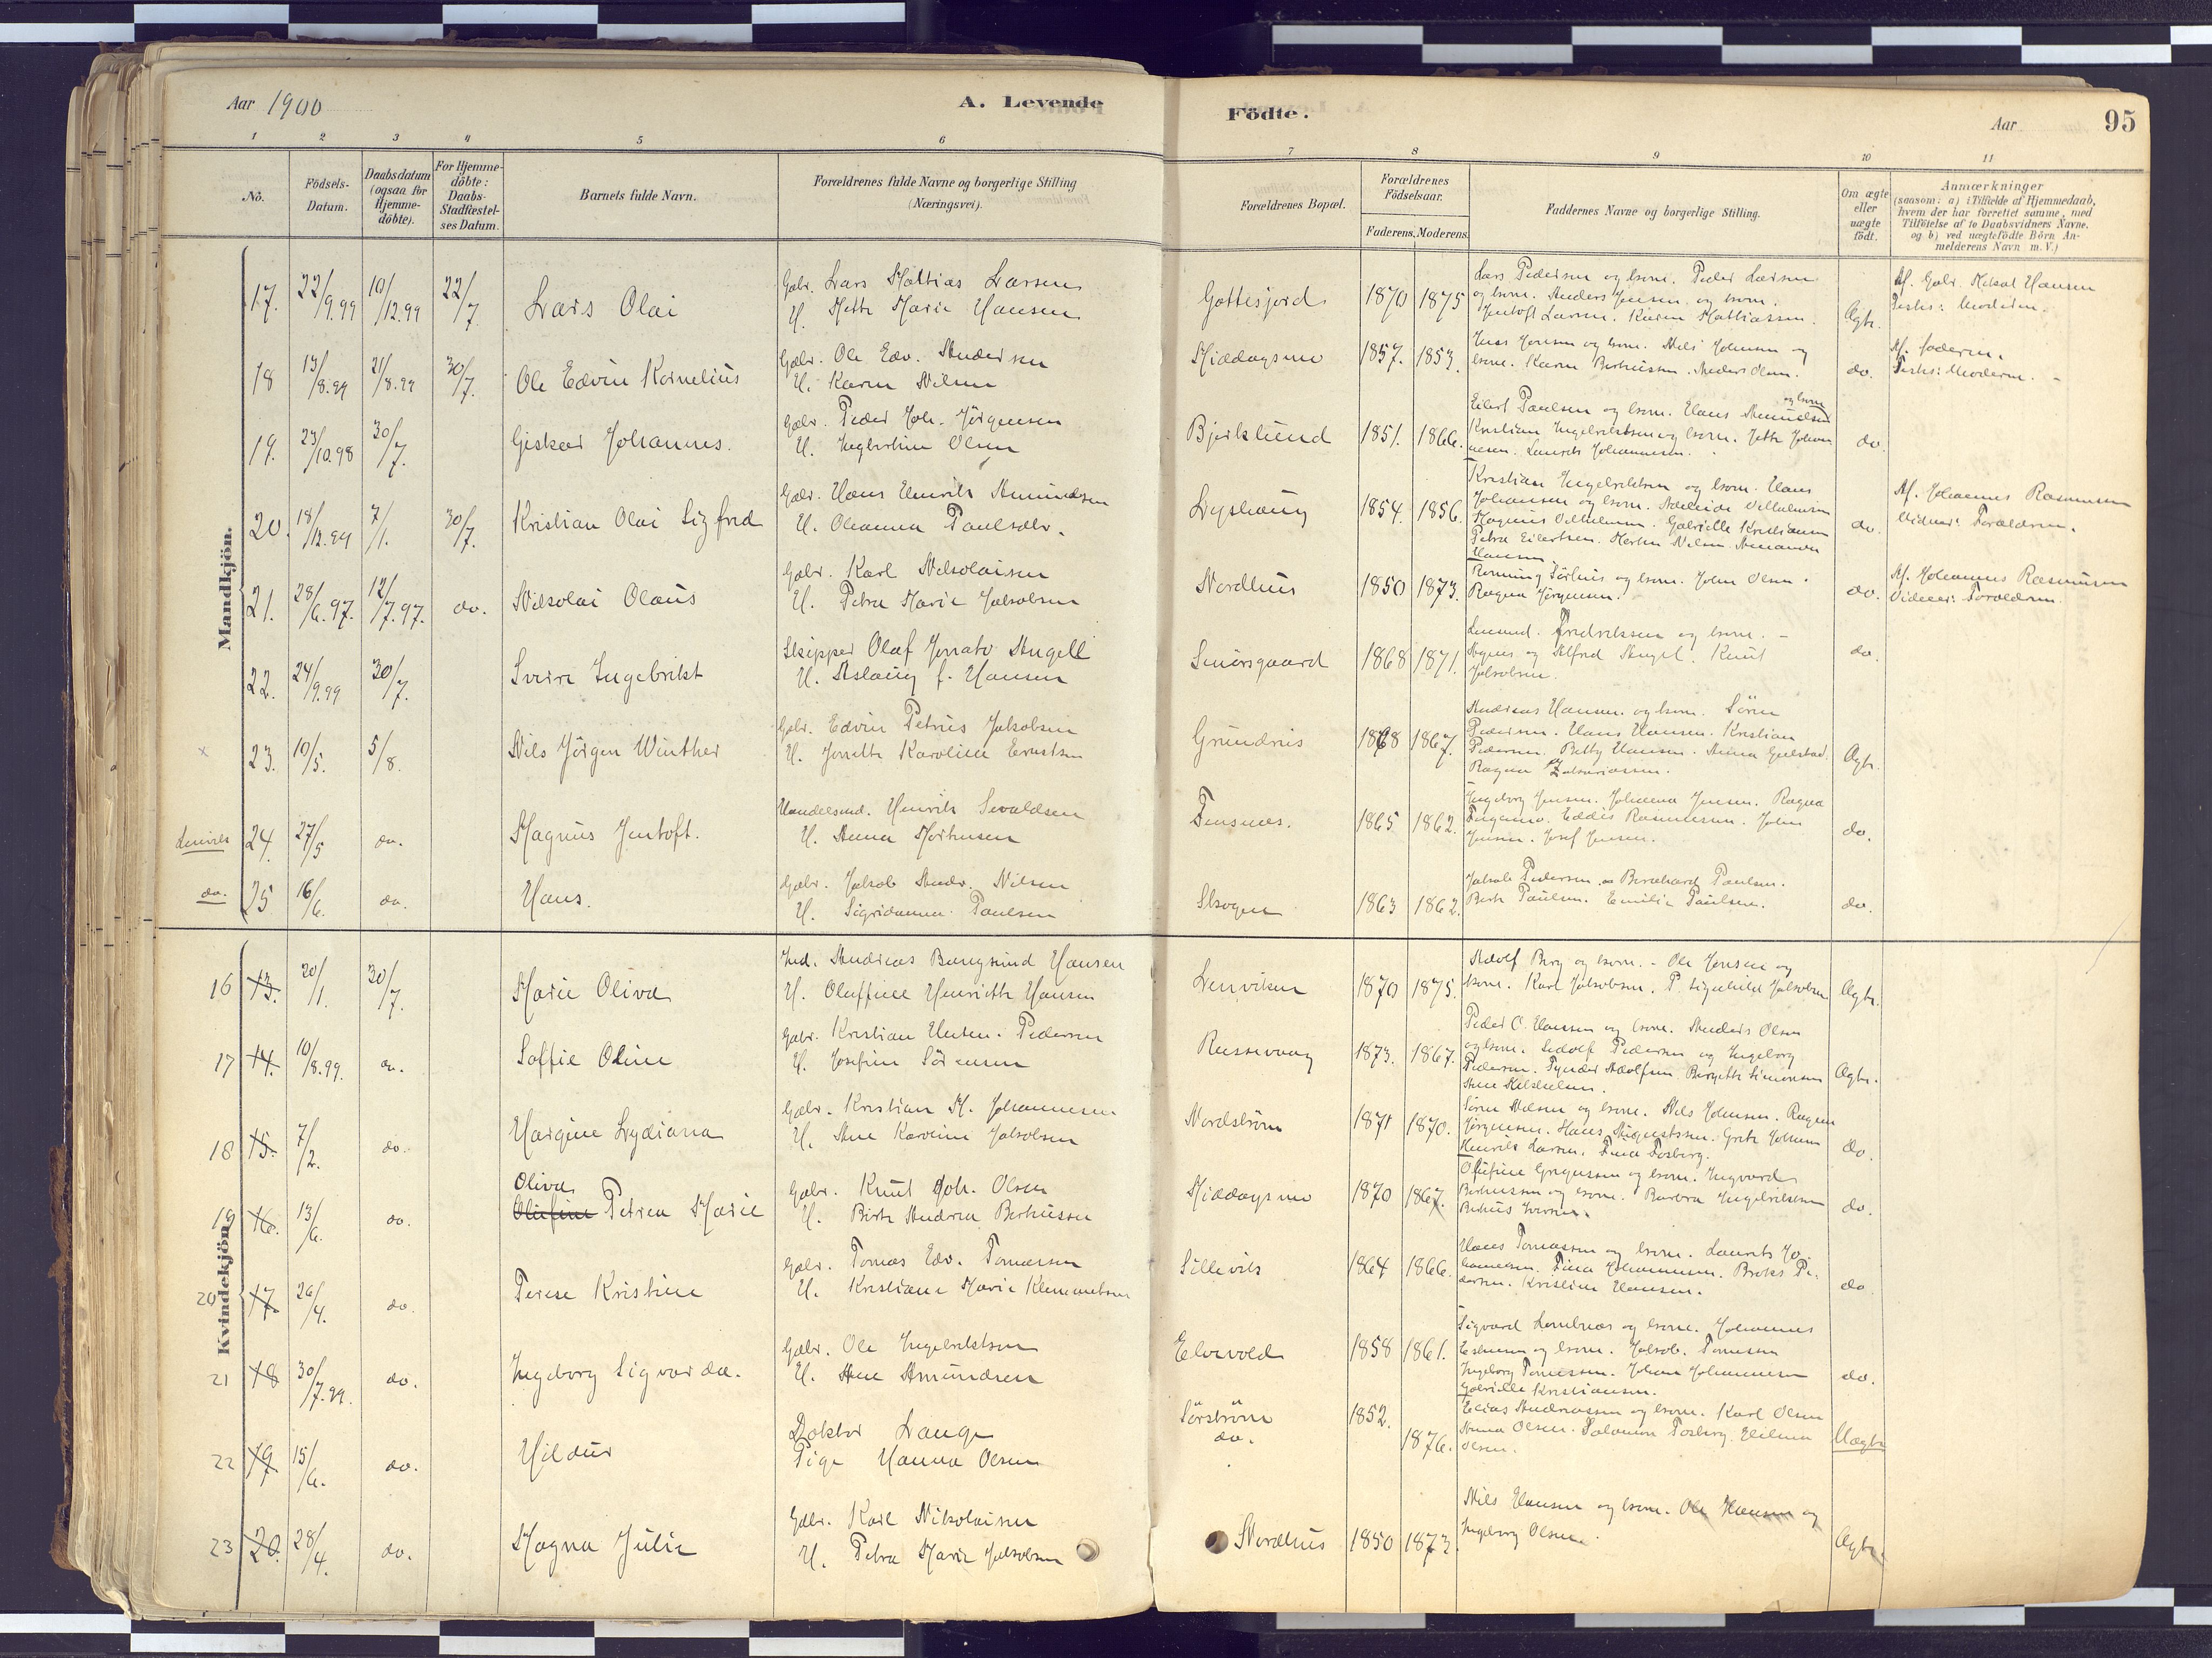 Aar 1900
A. Levende
Födte.
Aar
95
1 2 3 4 5 6 7 8 9 10 11
No.
Födsels-Datum.
Daabsdatum (ogsaa for Hjemme-döbte).
For Hjemme-döbte: Daabs-Stadfæstel-ses Datum.
Barnets fulde Navn.
Forældrenes fulde Navne og borgerlige Stilling (Næringsvei).
Forældrenes Bopæl.
Forældrenes Födselsaar.
Faderens. Moderens.
Faddernes Navne og borgerlige Stilling.
Om ægte eller uægte födt.
Anmærkninger
(saasom: a) i Tilfælde af Hjemmedaab,
hvem der har forrettet samme, med
Tilföielse af to Daabsvidners Navne,
og b) ved uægtefödte Börn An-
melderens Navn m.V.)
Mandkjön.
17. 22/9.99 10/12.99 22/7. Lars Olai
Gbr. Lars Mathias Larsen
H. Mette Marie Hansen
Gottesjord 1870 1875
Lars Pedersen og kone. Peder Larsen
og kone. Anders Jensen og kone.
Jentoft Larsen. Karen Mathiassen.
Ægte.
Af Gbr. Mikal Hansen
Testes: Moderen.
18 13/8.99 21/8.99 30/7. Ole Edvin Kornelius
Gbr. Ole Edv. Andersen
H. Karen Nilsen
Middagsnes 1857. 1853.
kone. Karen Berhussen. Anders Olsen.
do.
Af. faderen.
Testes: Moderen.
19. 23/10.98 30/7. Giskar Johannes.
Gbr. Peder Joh. Jörgensen
H. Ingborine Olsen
Bjerklund 1851. 1866.
Eilert Paulsen og kone. Hans Amundsen og kone
Kristian Ingebrigtsen og kone. Jette Johan-
nesen. Laurits Johannesen.
do.
20. 18/12.99 7/1. 30/7. Kristian Olai Sigfred
Gbr. Hans Henrik Amundsen
H. Oleanna Paulsdtr.
Lyshaug 1854. 1856.
Kristian Ingebriktsen og kone. Hans
Johansen og kone. Adeleide Vilhelmsen
Magnus Vilhelmsen. Gabrielle Kristiansen
Petra Eilertsen. Martin Nilsen. Amanda
Hansen.
do.
Af. Johannes Rasmussen
Vidner: Forældrene.
21. 28/6.97. 12/7.97. do. Nikolai Olaus
Gbr. Karl Nikolaisen
H. Petra Marie Jakobsen
Nordhus 1850 1873.
Ronning Sörhus og kone. John Olsen.
Ragna Jörgensen.
do.
Af. Johannes Rasmussen
Vidner: Forældrene.
22. 24/9.99 30/7. Sverre Ingebrikt
Skipper Olaf Jonato Angell
H. Aslaug f. Hansen
Smörsgaard 1868 1871.
Fredriksen og kone. -
Agnes og Alfred Angel. Knut
Jakobsen.
do.
x 23. 10/5. 5/8. Nils Jörgen Winther
Gbr. Edvin Petrus Jakobsen
H. Jonette Karoline Ernstsen
Grundnes 1868 1867.
Andreas Hansen og kone. Sören
Pedersen. Hans Hansen. Kristian
Pedersen. Betty Hansen. Anna Gulstad.
Ragna Zakariassen.
Ægte.
Lenvik 24. 27/5 do. Magnus Jentoft.
Handelsmd. Henrik Sevaldsen
H. Anna Mortensen
Finsnes. 1865 1862.
Ingeborg Jensen. Johanna Jensen. Ragna
Eddis Rasmussen. John
Jensen. Josef Jensen.
do.
do. 25 16/6. do. Hans.
Gbr. Jakob Andr. Nilsen
H. Sigridanna Paulsen
Skogen 1863 1862.
Jakob Pedersen. Bernhard Paulsen.
Berte Paulsen. Emilie Paulsen.
do.
Kvindekjön.
16 13. 20/1. 30/7. Marie Oliva
Ind. Andreas Bangsund Hansen
H. Oluffine Henriette Hansen
Lenviken 1870 1875.
Adolf Berg og kone. - Ole Jensen og
kone. Karl Jakobsen. P. Signhild Jakobsen
Ægte.
17 14. 10/8.99. do. Soffie Oline
Gbr. Kristian Pedersen
H. Josefine Sörensen
Russevaag 1873. 1867.
Peder C. Hansen og kone. Anders Olsen
og kone. Sedolf Pedersen og Ingeborg
Pedersen. Peder Adolfsen. Bergitte Simonsen
Ægte.
18 15. 7/2. do. Hargine Lydiana
Gbr. Kristian M. Johannesen
H. Ane Karoline Jakobsen
Nordström 1871 1870.
Sören Nilsen og kone. Nils Johnsen. Ragna
Jörgensen. Hans Augustssen. Grete Johnsen
Henrik Larsen. Tina Fosberg.
do.
19 16. 13/6. do. Oliva Olufine Petrea Marie
Gbr. Knut Joh. Olsen
H. Berte Andrea Berhussen
Middagsnes 1870 1867.
Olufine Gregussen og kone. Ingvard
Berhussen og kone. Barbra Ingebriktsen
Berhus Iversen.
do.
20 17. 26/4. do. Terese Kristine
Gbr. Tomas Edv. Tomassen
H. Kristiane Marie Klemmetsen
Sillevik 1864 1866.
Hans Tomassen og kone. Laurits Jo-
hannesen. Tina Johannesen. Broks Pe-
dersen. Kristine Hansen.
do
21 18 30/7.99. do. Ingeborg Sigvarda.
Gbr. Ole Ingebriktsen
H. Ane Amundsen
Elvevold 1858 1861.
Sigvard Lombnæs og kone. Johannes
Eskusen og kone. Jakob. Tomassen
Ingeborg Tomassen. Johan Johannesen
Gabrielle Kristiansen.
do.
22 19 15/6. do. Hildur
Doktor Lange
Pige Hanna Olsen
Sörström do. 1852. 1876.
Elias Andreassen og kone. Karl Olsen
Anna Olsen. Salomon Fosberg. Hilma
Olsen.
Uægte
23 20. 28/4. do. Magna Julie
Gbr. Karl Nikolaisen
H. Petra Marie Jakobsen
Nordhus 1850 1873.
Nils Hansen og kone. Ole Hansen og
Ingeborg Olsen.
Ægte.